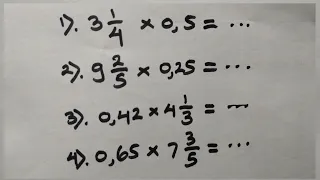 1). 3 1/4 × 0,5 = ...
2). 9 2/5 × 0,25 = ...
3). 0,42 × 4 1/3 = ...
4). 0,65 × 7 3/5 = ...